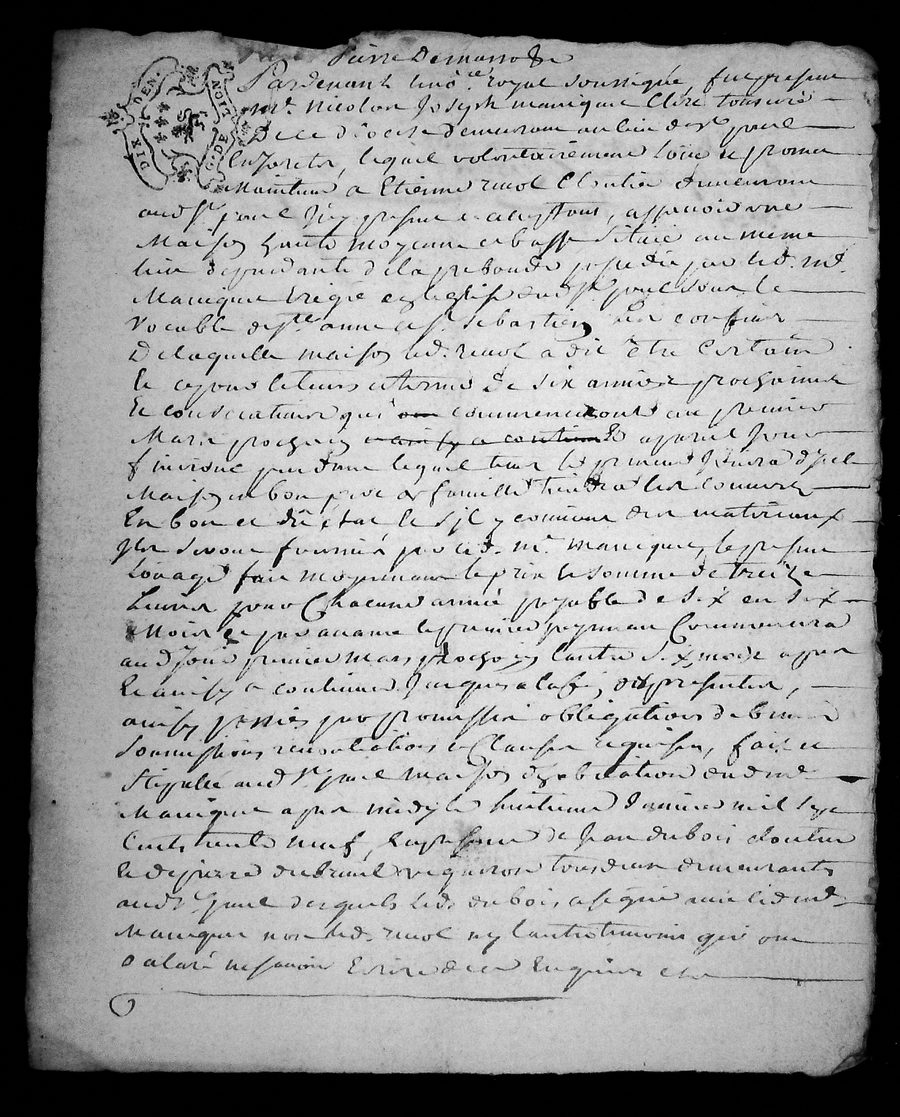 Pierre Demasso
DIX DEN.
G. DE NOIT
Pardevant le no.re royal soussigné, fut present
m.re nicolas Joseph manique Clerc tonsuré
De ce diocese demeurant au lieu de s.t paul
En Jarets, lequel volontairement loüe et promet
Maintenir a Etienne ruol Cloutier demeurant
aud. s.t paul Icy present et acceptant, assavoir une
Maison haute moyenne et basse située au meme
lieu dependante de la prebande possedée par led. m.e
Manique Erigée en leglise dud. s.t paul sous le
Vocable de s.te anne et s.t sebastien les confins
De laquelle maison led. ruol a dit être Certain
Et ce pour le tems et terme de six années prochaines
Et consecutives qui commenceront au premier
Mars prochain a pareil Jour
finiront pendant lequel tems le preneur Jouira de lad.
Maison en bon pere de famille tiendra les couverts
En bon et dû état et s'il y convient des materiaux
Ils seront fournis par led. m.e manique, le present
Loüage fait moyennant le prix et somme de treize
Livres pour Chacune année payable de six en six
Mois et par avance le premier payement Commencera
aud. Jour premier mars prochain l'autre six mois apres
Et ainsy a continuer Jusques a la fin, des presentes,
ainsy passées par promesses obligations de biens
soumissions renonciations et Clauses requises, fait et
stipulé aud. s.t paul maison d'habitation dud. m.e
Manique apres midy le huitieme Janvier mil sept
Cents trente neuf, En presence de Jean dubois cloutier
Et de pierre dubreuil vigneron tous deux demeurants
aud. s.t paul desquels led. dubois a signé avec led. m.e
Manique non led. ruol ny l'autre temoin qui ont
Declaré ne savoir Ecrire de ce Enquis et